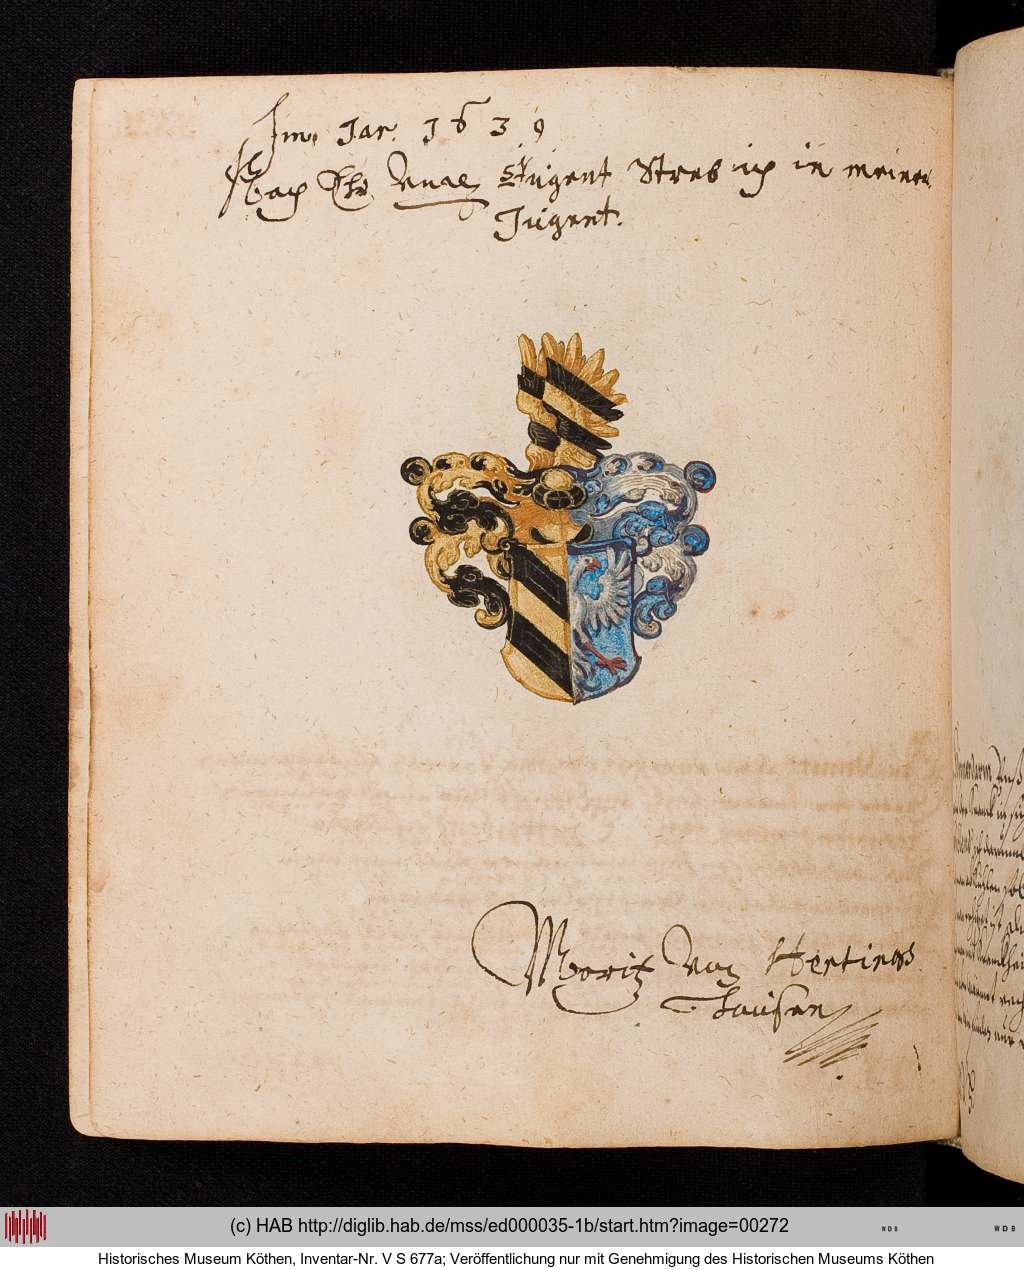 Im Jar. 1639
Nach Ehr Vnd Tugent Streb ich in meiner
Jugent.
Moritz Von Hertings
hausen
(c) HAB http://diglib.hab.de/mss/ed000035-1b/start.htm?image=00272
WDB
WDB
Historisches Museum Köthen, Inventar-Nr. V S 677a; Veröffentlichung nur mit Genehmigung des Historischen Museums Köthen